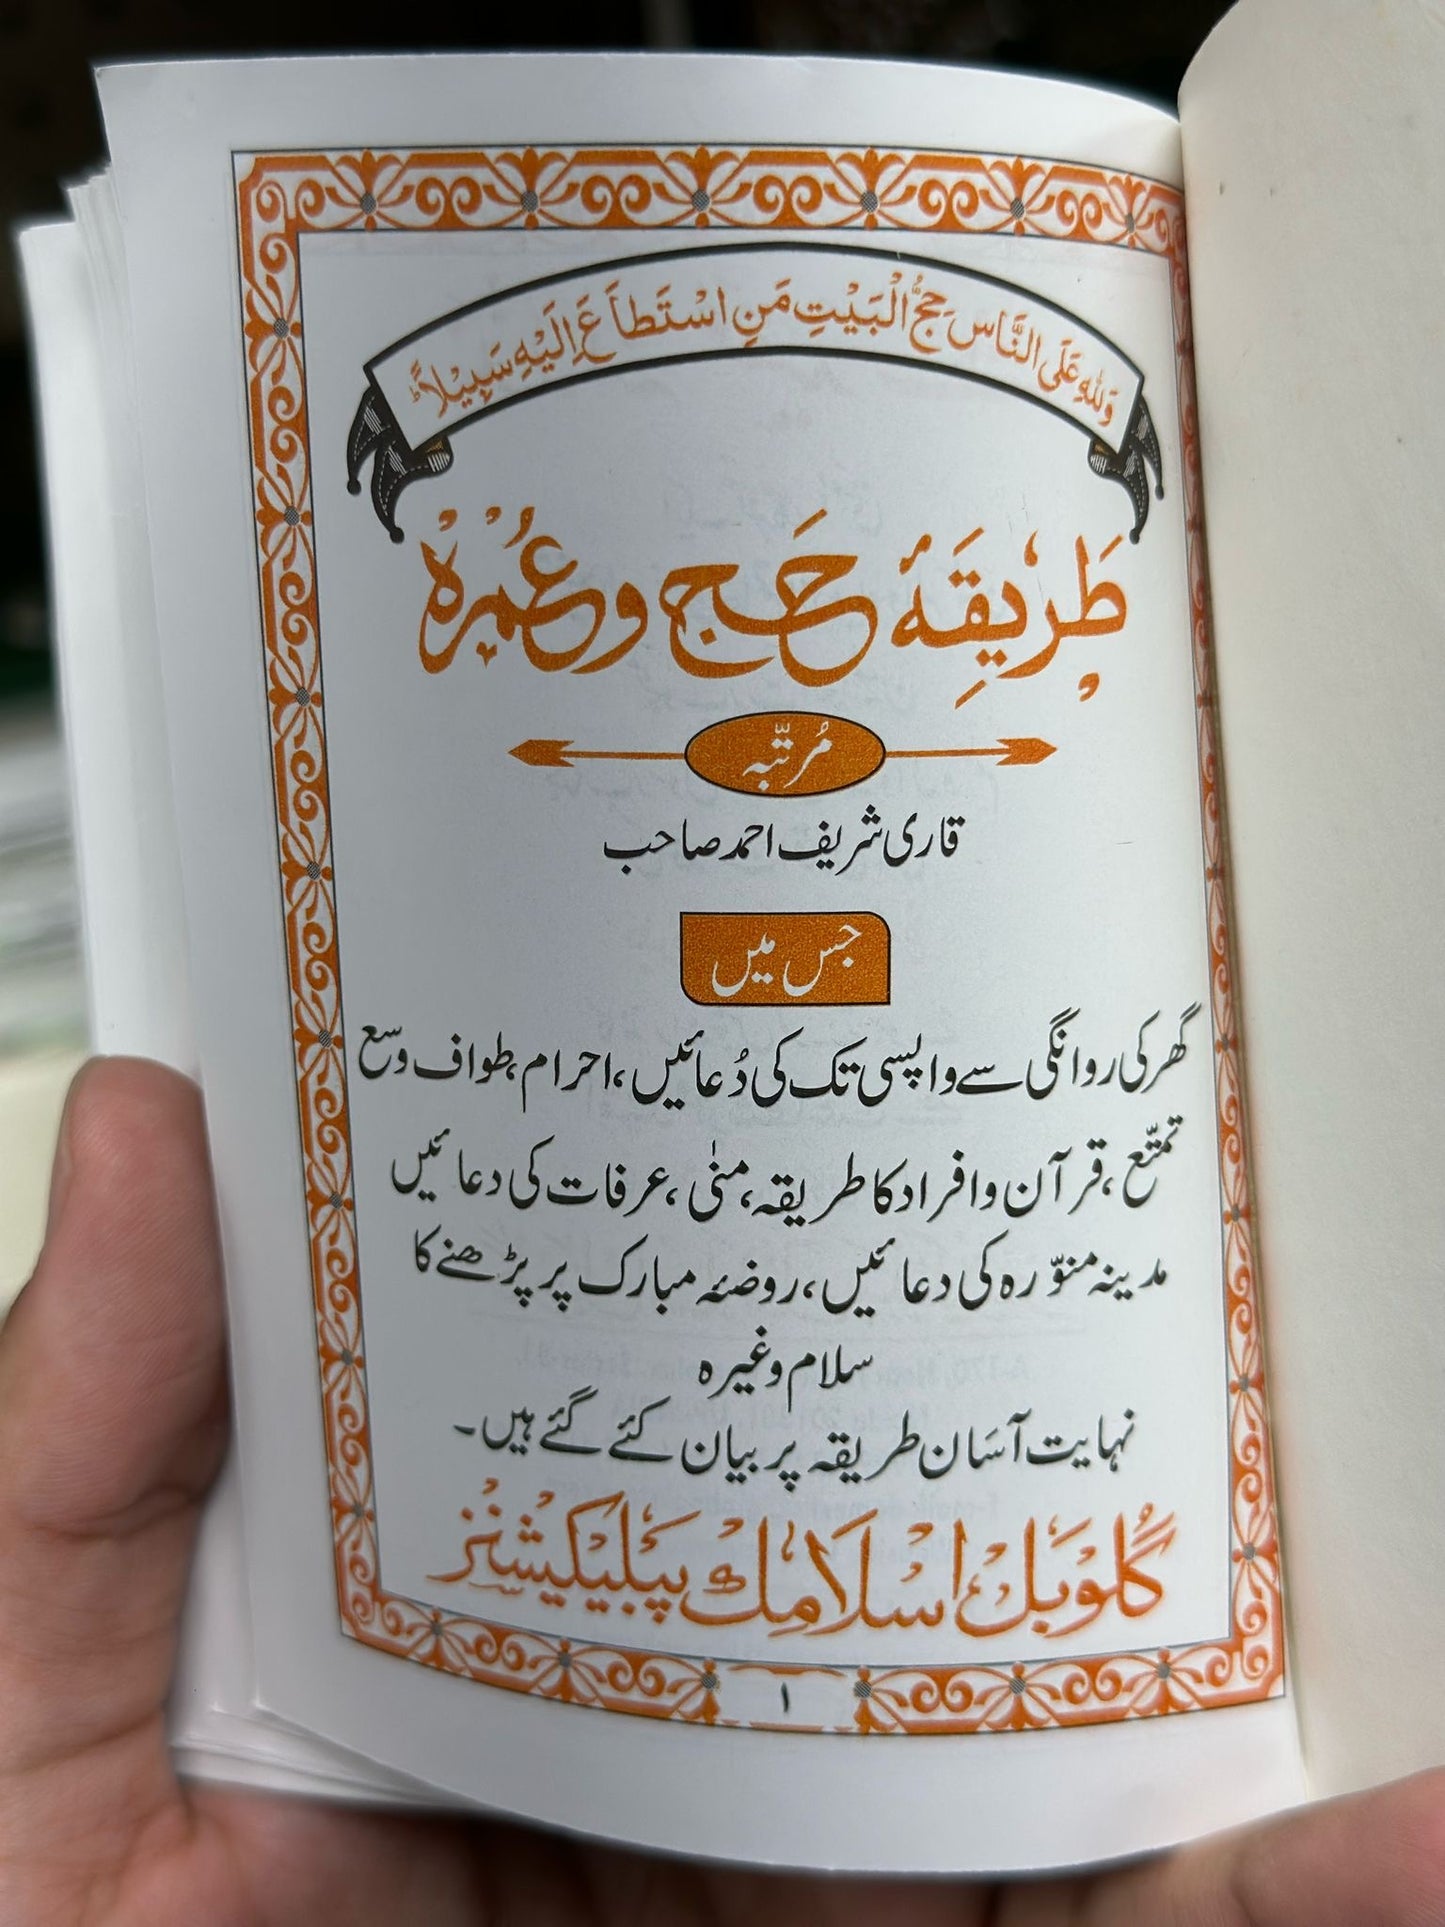 وَلِلّٰهِ عَلَى النَّاسِ حَجُّ الْبَيْتِ مَنِ اسْتَطَاعَ اِلَيْهِ سَبِيْلًا ؕ
طَرِيقِهٔ حَج و عُمْرَہ
مُرتّبہ
قاری شریف احمد صاحب
جس میں
گھر کی روانگی سے واپسی تک کی دُعائیں، احرام، طواف وسع
تمتّع، قرآن و افراد کا طریقہ، منٰی، عرفات کی دعائیں
مدینہ منوّرہ کی دعائیں، روضئہ مبارک پر پڑھنے کا
سلام وغیرہ
نہایت آسَان طریقہ پر بیان کئے گئے ہیں۔
گلوبل اسلامک پبلیکیشنز
۱